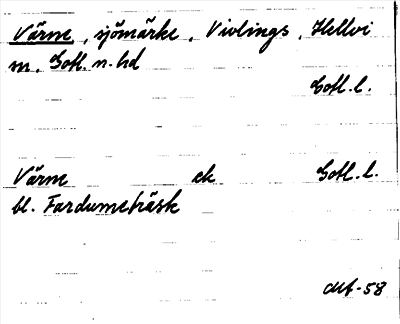 Värme, sjömärke, Vivlings, Hellvi
m. Gotl. n. hd
Gotl. l.
Värme ek Gotl. l.
bl. Fardumeträsk
-58